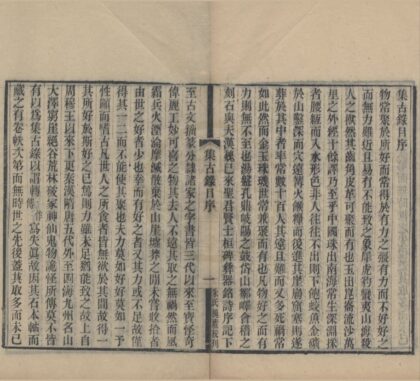 集古錄目序
物常聚於所好而常得於有力之彊有力而不好好之
而無力雖近且易有不能致之象犀虎豹蠻夷山海殺
人之獸然其齒角皮革可聚而有也玉出崑崙流沙萬
里之外經十餘譯乃至乎中國珠出南海常生深淵採
者腰絙而入水形色非人往往不出則下飽蛟魚金礦
於山鑿深而穴遠篝火餱糧而後進其崖崩窟塞則遂
葬於其中者率常數十百人其遠且難而又多死禍常
如此然而金玉珠璣世常兼聚而有也凡物好之而有
力則無不至也湯盤孔鼎岐陽之鼓岱山鄒嶧會稽之
刻石與夫漢魏已來聖君賢士桓碑彝器銘詩序記下
集古錄目序
一
朱氏槐廬校刊
至古文籀篆分隸諸家之字書皆三代以來至寶怪奇
偉麗工妙可喜之物其去人不遠其取之無禍然而風
霜兵火湮淪摩滅散棄於山崖墟莽之間未嘗收拾者
由世之好者少也幸而有好之者又其力或不足故僅
得其一二而不能使其聚也夫力莫如好好莫如一予
性顓而嗜古凡世人之所貪者皆無欲於其間故得一
其所好於斯好之已篤則力雖未足猶能致之故上自
周穆王以來下更秦漢隋唐五代外至四海九州名山
大澤窮崖絕谷荒林破冢神仙鬼物詭怪所傳莫不皆
有以爲集古錄以謂轉寫失真故因其石本軸而
藏之有卷帙次第而無時世之先後蓋其取多而未已